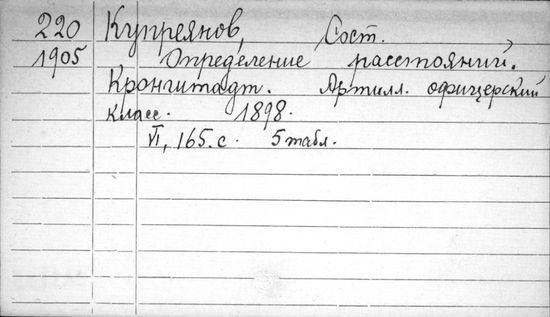 220 Купреянов, Сост.
1905 Определение расстояний.
Кронштадт. Артилл. офицерский
класс. 1898.
VI, 165.с. 5 табл.